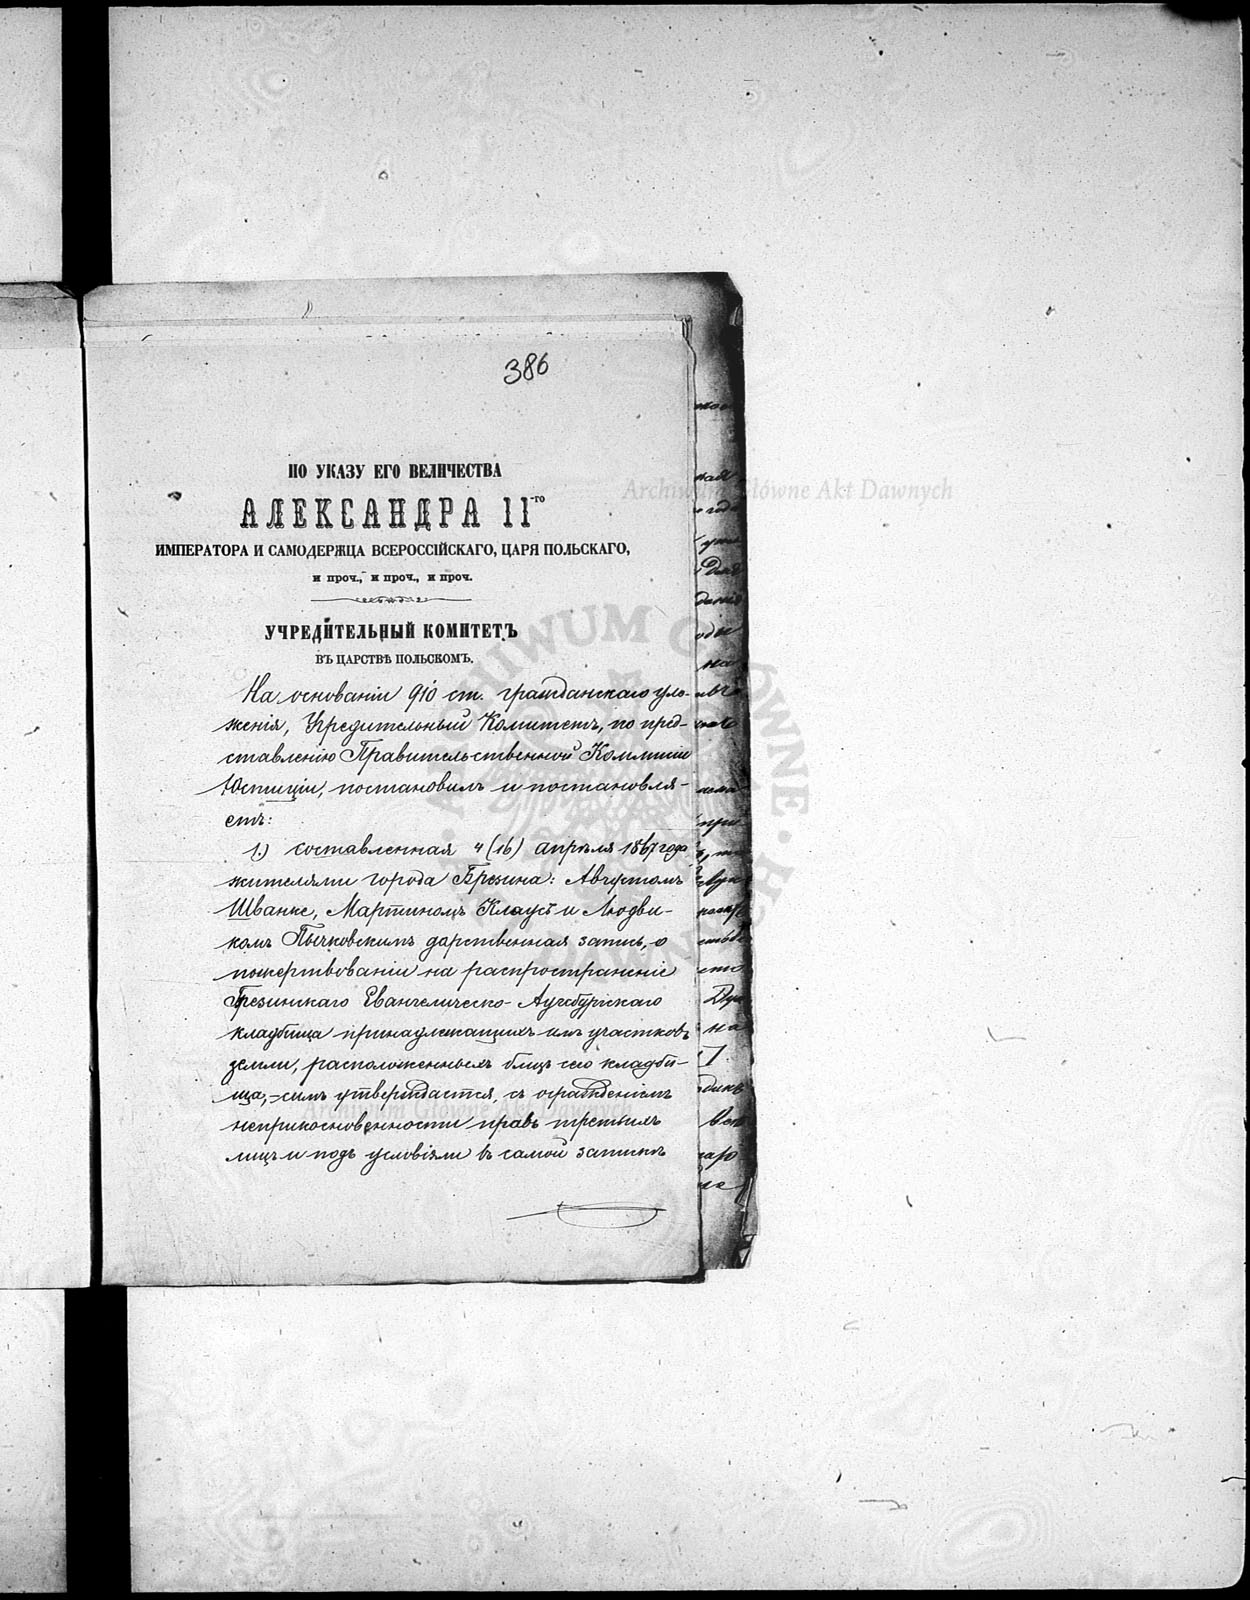 386
ПО УКАЗУ ЕГО ВЕЛИЧЕСТВА
АЛЕКСАНДРА II-го
ИМПЕРАТОРА И САМОДЕРЖЦА ВСЕРОССІЙСКАГО, ЦАРЯ ПОЛЬСКАГО,
и проч., и проч., и проч.
УЧРЕДИТЕЛЬНЫЙ КОМИТЕТЪ
ВЪ ЦАРСТВѢ ПОЛЬСКОМЪ.
На основаніи 910 ст. гражданскаго уло-
женія, Учредительный Комитетъ, по пред-
ставленію Правительственной Коммисіи
Юстиціи, постановилъ и постановля-
етъ:
1.) составленная 4 (16) апрѣля 1867 года
жителями города Брезина: Августомъ
Шванке, Мартиномъ Клаусъ и Людви-
комъ Пычковскимъ дарственная запись, о
пожертвованіи на распространеніе
Брезинскаго Евангелическо-Аугсбургскаго
кладбища принадлежащихъ имъ участковъ
земли, расположенныхъ близъ сего кладби-
ща,-симъ утверждается, съ огражденіемъ
неприкосновенности правъ третьихъ
лицъ и подъ условіями въ самой записи
Archiwum Główne Akt Dawnych
Archiwum Główne Akt Dawnych
ARCHIWUM GŁÓWNE AKT DAWNYCH